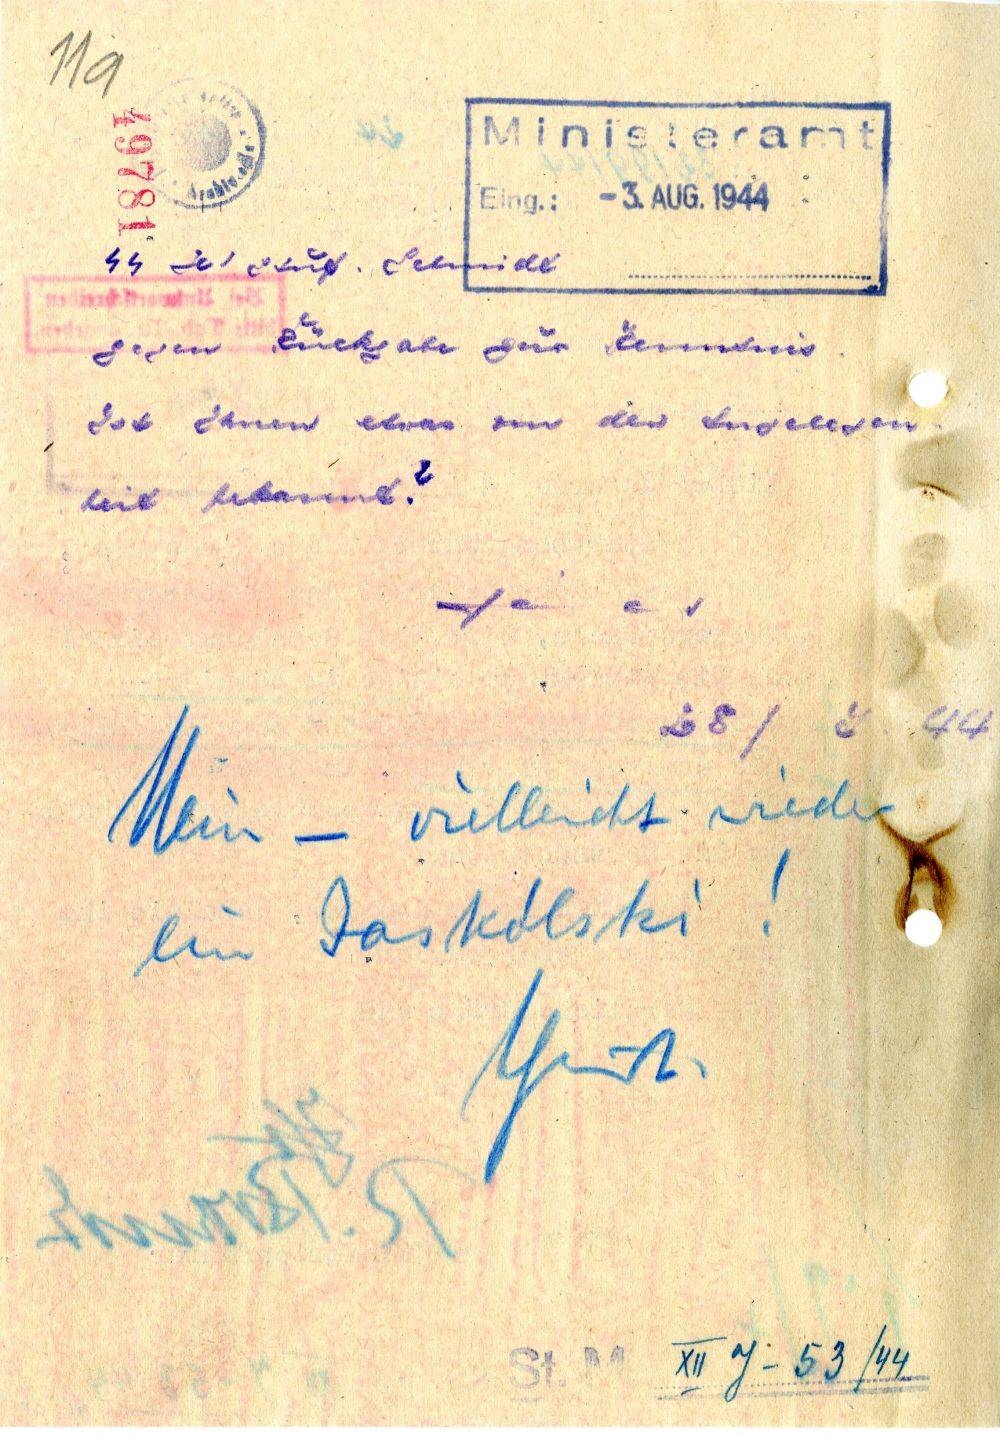 119
49781
Ministeramt
Eing.: -3. AUG. 1944
SS Schmidt
gegen Rückgabe zur Kenntnis.
Ist Ihnen etwas von der Angelegen-
heit bekannt?
28/ 7. 44
Nein – vielleicht wieder
ein Jaskólski!
St. M. XII J - 53/44